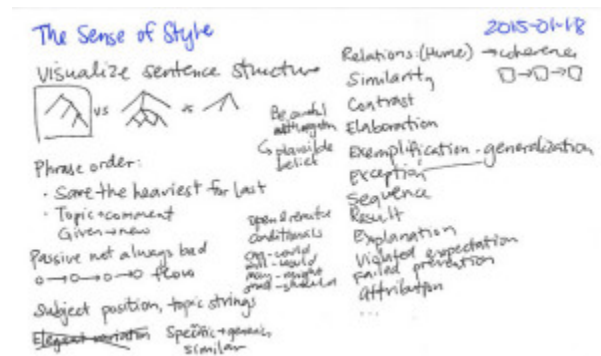 The Sense of Style
2015-01-18
visualize sentence structure
vs vs
Phrase order:
• Save the heaviest for last
• Topic→comment
Given→new
Passive not always bad
flow
Subject position, topic strings
Elegant variation
Specific→generic
similar
Be careful
with negation
↳ plausible
belief
open & remote
conditionals
can-could
will-would
may-might
Relations: (Hume) → coherence
Similarity
Contrast
Elaboration
Exemplification - generalization
Exception
Sequence
Result
Explanation
Violated expectation
Failed prevention
Attribution
...